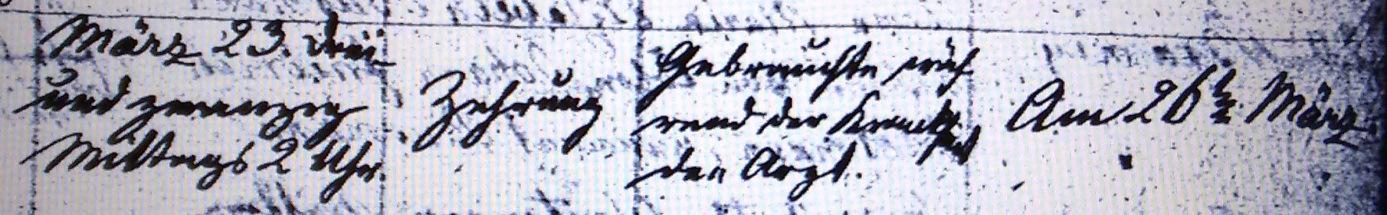 März 23. drei
und zwanzig
Mittags 2 Uhr.
Zehrung
Gebrauchte wäh
rend der Krankheit
den Arzt.
Am 26t März